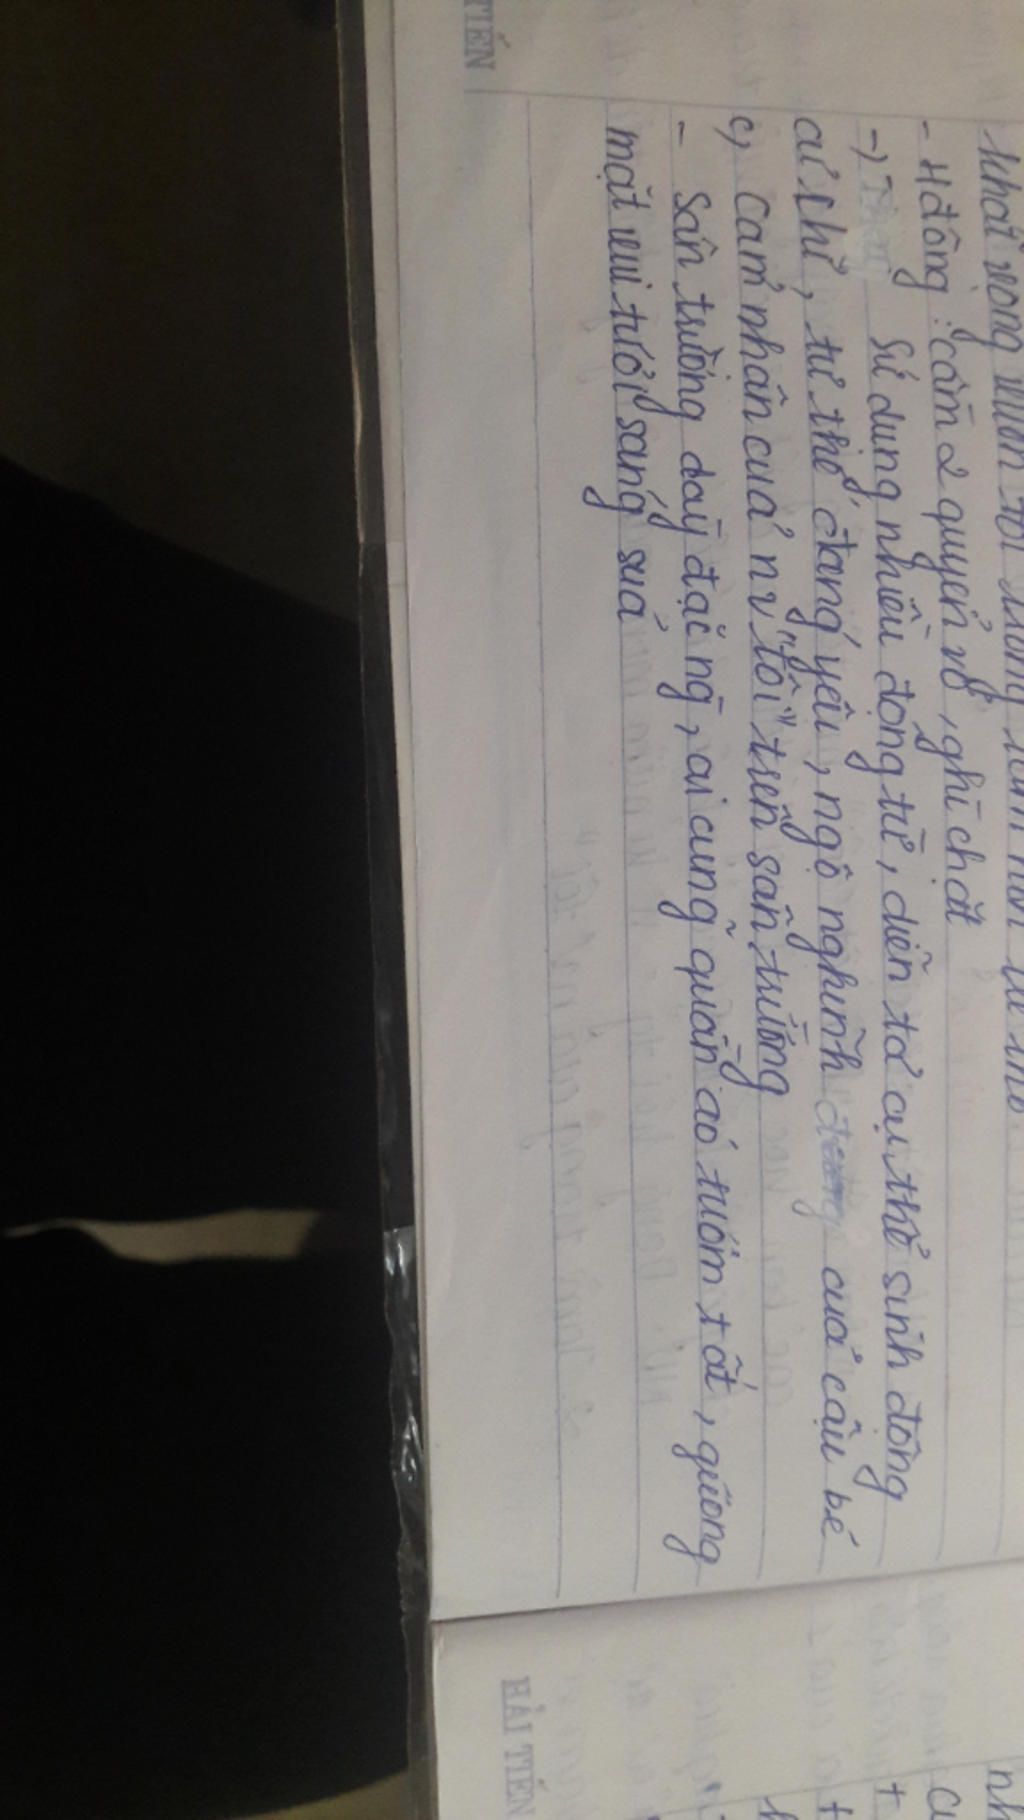 khát vọng muốn tới
- Hđộng : cầm 2 quyển vở, ghì chặt
→ Sử dụng nhiều động từ, diễn tả cụ thể sinh động
cử chỉ, tư thế đáng yêu, ngộ nghĩnh của cậu bé
c, Cảm nhận của nv "tôi" trên sân trường
- Sân trường dày đặc ng, ai cũng quần áo tươm tất, gương
mặt vui tươi sáng sủa
TIẾN
HẢI TIẾN